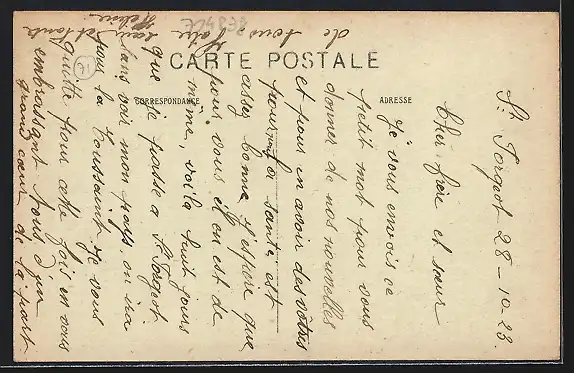 CARTE POSTALE
CORRESPONDANCE
ADRESSE
St Forgeot 28-10-23
Cher frère et sœur
Je vous envois ce
petit mot pour vous
donner de nos nouvelles
et pour en avoir des vôtres
pour moi santé est
assez bonne j'espère que
pour vous il en est de
même, voila huit jours
que je passe a St Forgeot
sans voir mon pays, on ira
pour la Toussaint. Je vous
quitte pour cette fois en vous
embrassant tous d'un
grand cœur de la part
de tous
71